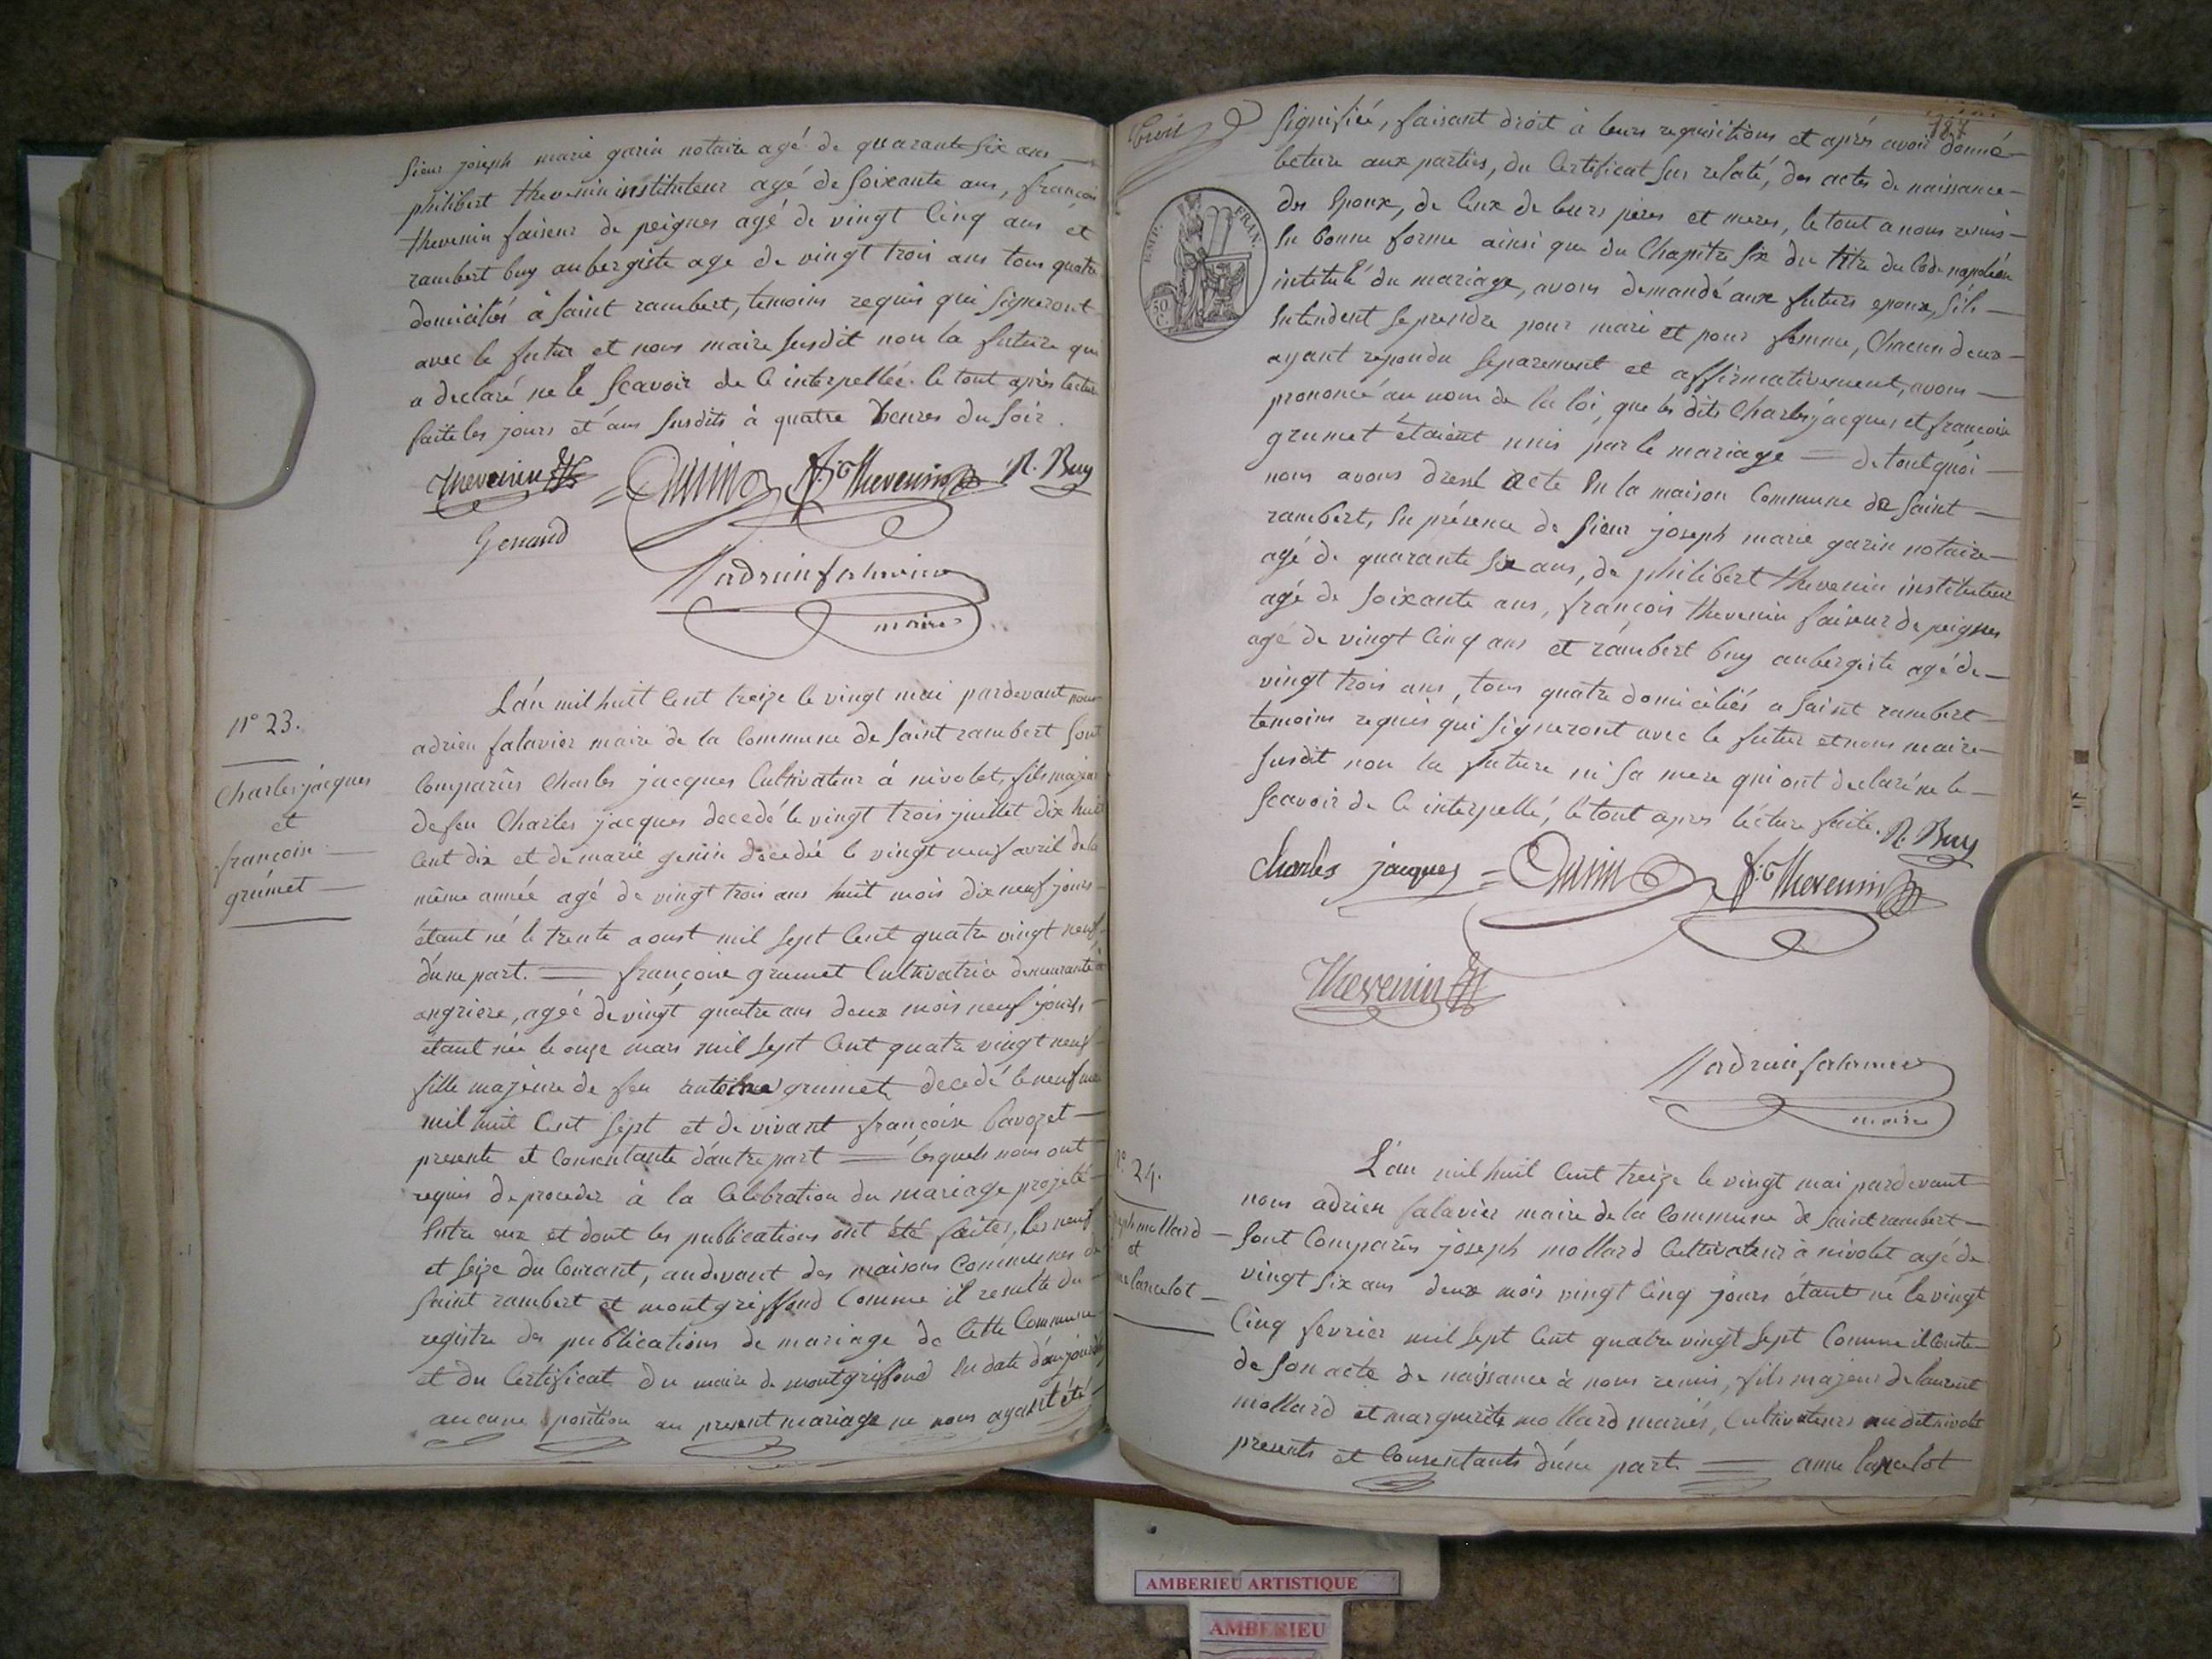 Sieur joseph marie garin notaire agé de quarante Six ans
philibert thevenin instituteur agé de Soixante ans, françois
thevenin faiseur de peignes agé de vingt Cinq ans et
rambert buy aubergiste age de vingt trois ans tous quatre
domiciliés à Saint rambert, temoins requis qui Signeront
avec le futur et nous maire Susdit non la future qui
a declaré ne le Scavoir de Ce interpellée. le tout après lecture
faite les jours et ans Susdits à quatre heures du Soir.
Thevenin
Garin
f. Thevenin
R. Buy
Genaud
adrien falavier
maire
L'an mil huit Cent treize le vingt mai pardevant nous
n° 23.
adrien falavier maire de la Commune de Saint rambert Sont
Comparus Charles jacques Cultivateur à nivolet, fils majeur
Charles jacques
de feu Charles jacques decedé le vingt trois juillet dix huit
et
Cent dix et de marie genin decedée le vingt neuf avril de la
françoise
même année agé de vingt trois ans huit mois dix neuf jours
grumet
étant né le trente aoust mil Sept Cent quatre vingt neuf
d'une part. = françoise grumet Cultivatrice demeurante à
angriere, agée de vingt quatre ans deux mois neuf jours,
étant née le onze mars mil Sept Cent quatre vingt neuf
fille majeure de feu antoine grumet decedé le neuf
mil huit Cent Sept et de vivant françoise
presente et Consentante d'autre part = lesquels nous ont
requis de proceder à la Celebration du mariage projeté
Entre eux et dont les publications ont été faites, les neuf
et Seize du Courant, audevant des maisons Communes de
Saint rambert et montgriffond Comme il resulte du
registre des publications de mariage de Cette Commune
et du Certificat du maire de montgriffond En date d'aujourdhui
aucune oposition au present mariage ne nous ayant été
187
Signifiée, faisant droit à leurs requisitions et après avoir donné
lecture aux parties, du Certificat Sus relaté, des actes de naissance
EMP. FRAN.
50 C.
des Epoux, de Ceux de leurs peres et meres, le tout a nous remis
En bonne forme ainsi que du Chapitre Six du titre du Code napoléon
intitulé du mariage, avons demandé aux futurs epoux, S'ils
Entendent Se prendre pour mari et pour femme, Chacun d'eux
ayant repondu Separement et affirmativement, avons
prononcé au nom de la loi, que les dits Charles jacques et françoise
grumet étaient unis par le mariage = de tout quoi
nous avons dressé acte En la maison Commune de Saint
rambert, En présence de Sieur joseph marie garin notaire
agé de quarante Six ans, de philibert thevenin instituteur
agé de Soixante ans, françois thevenin faiseur de peignes
agé de vingt Cinq ans et rambert buy aubergiste agé de
vingt trois ans, tous quatre domiciliés a Saint rambert
temoins requis qui Signeront avec le futur et nous maire
Susdit non la future ni Sa mere qui ont declaré ne le
Scavoir de Ce interpellé, le tout apres lecture faite.
R. Buy
Charles jacques
Garin
f. Thevenin
Thevenin
adrien falavier
maire
L'an mil huit Cent treize le vingt mai pardevant
24.
nous adrien falavier maire de la Commune de Saint rambert
mollard
Sont Comparus joseph mollard Cultivateur à nivolet agé de
et
vingt Six ans deux mois vingt Cinq jours étant né le vingt
lancelot
Cinq fevrier mil Sept Cent quatre vingt Sept Comme il Conste
de Son acte de naissance à nous remis, fils majeur de laurent
mollard et marguerite mollard mariés, Cultivateurs au dit nivolet
presents et Consentants d'une part = anne lancelot
AMBERIEU ARTISTIQUE
AMBERIEU